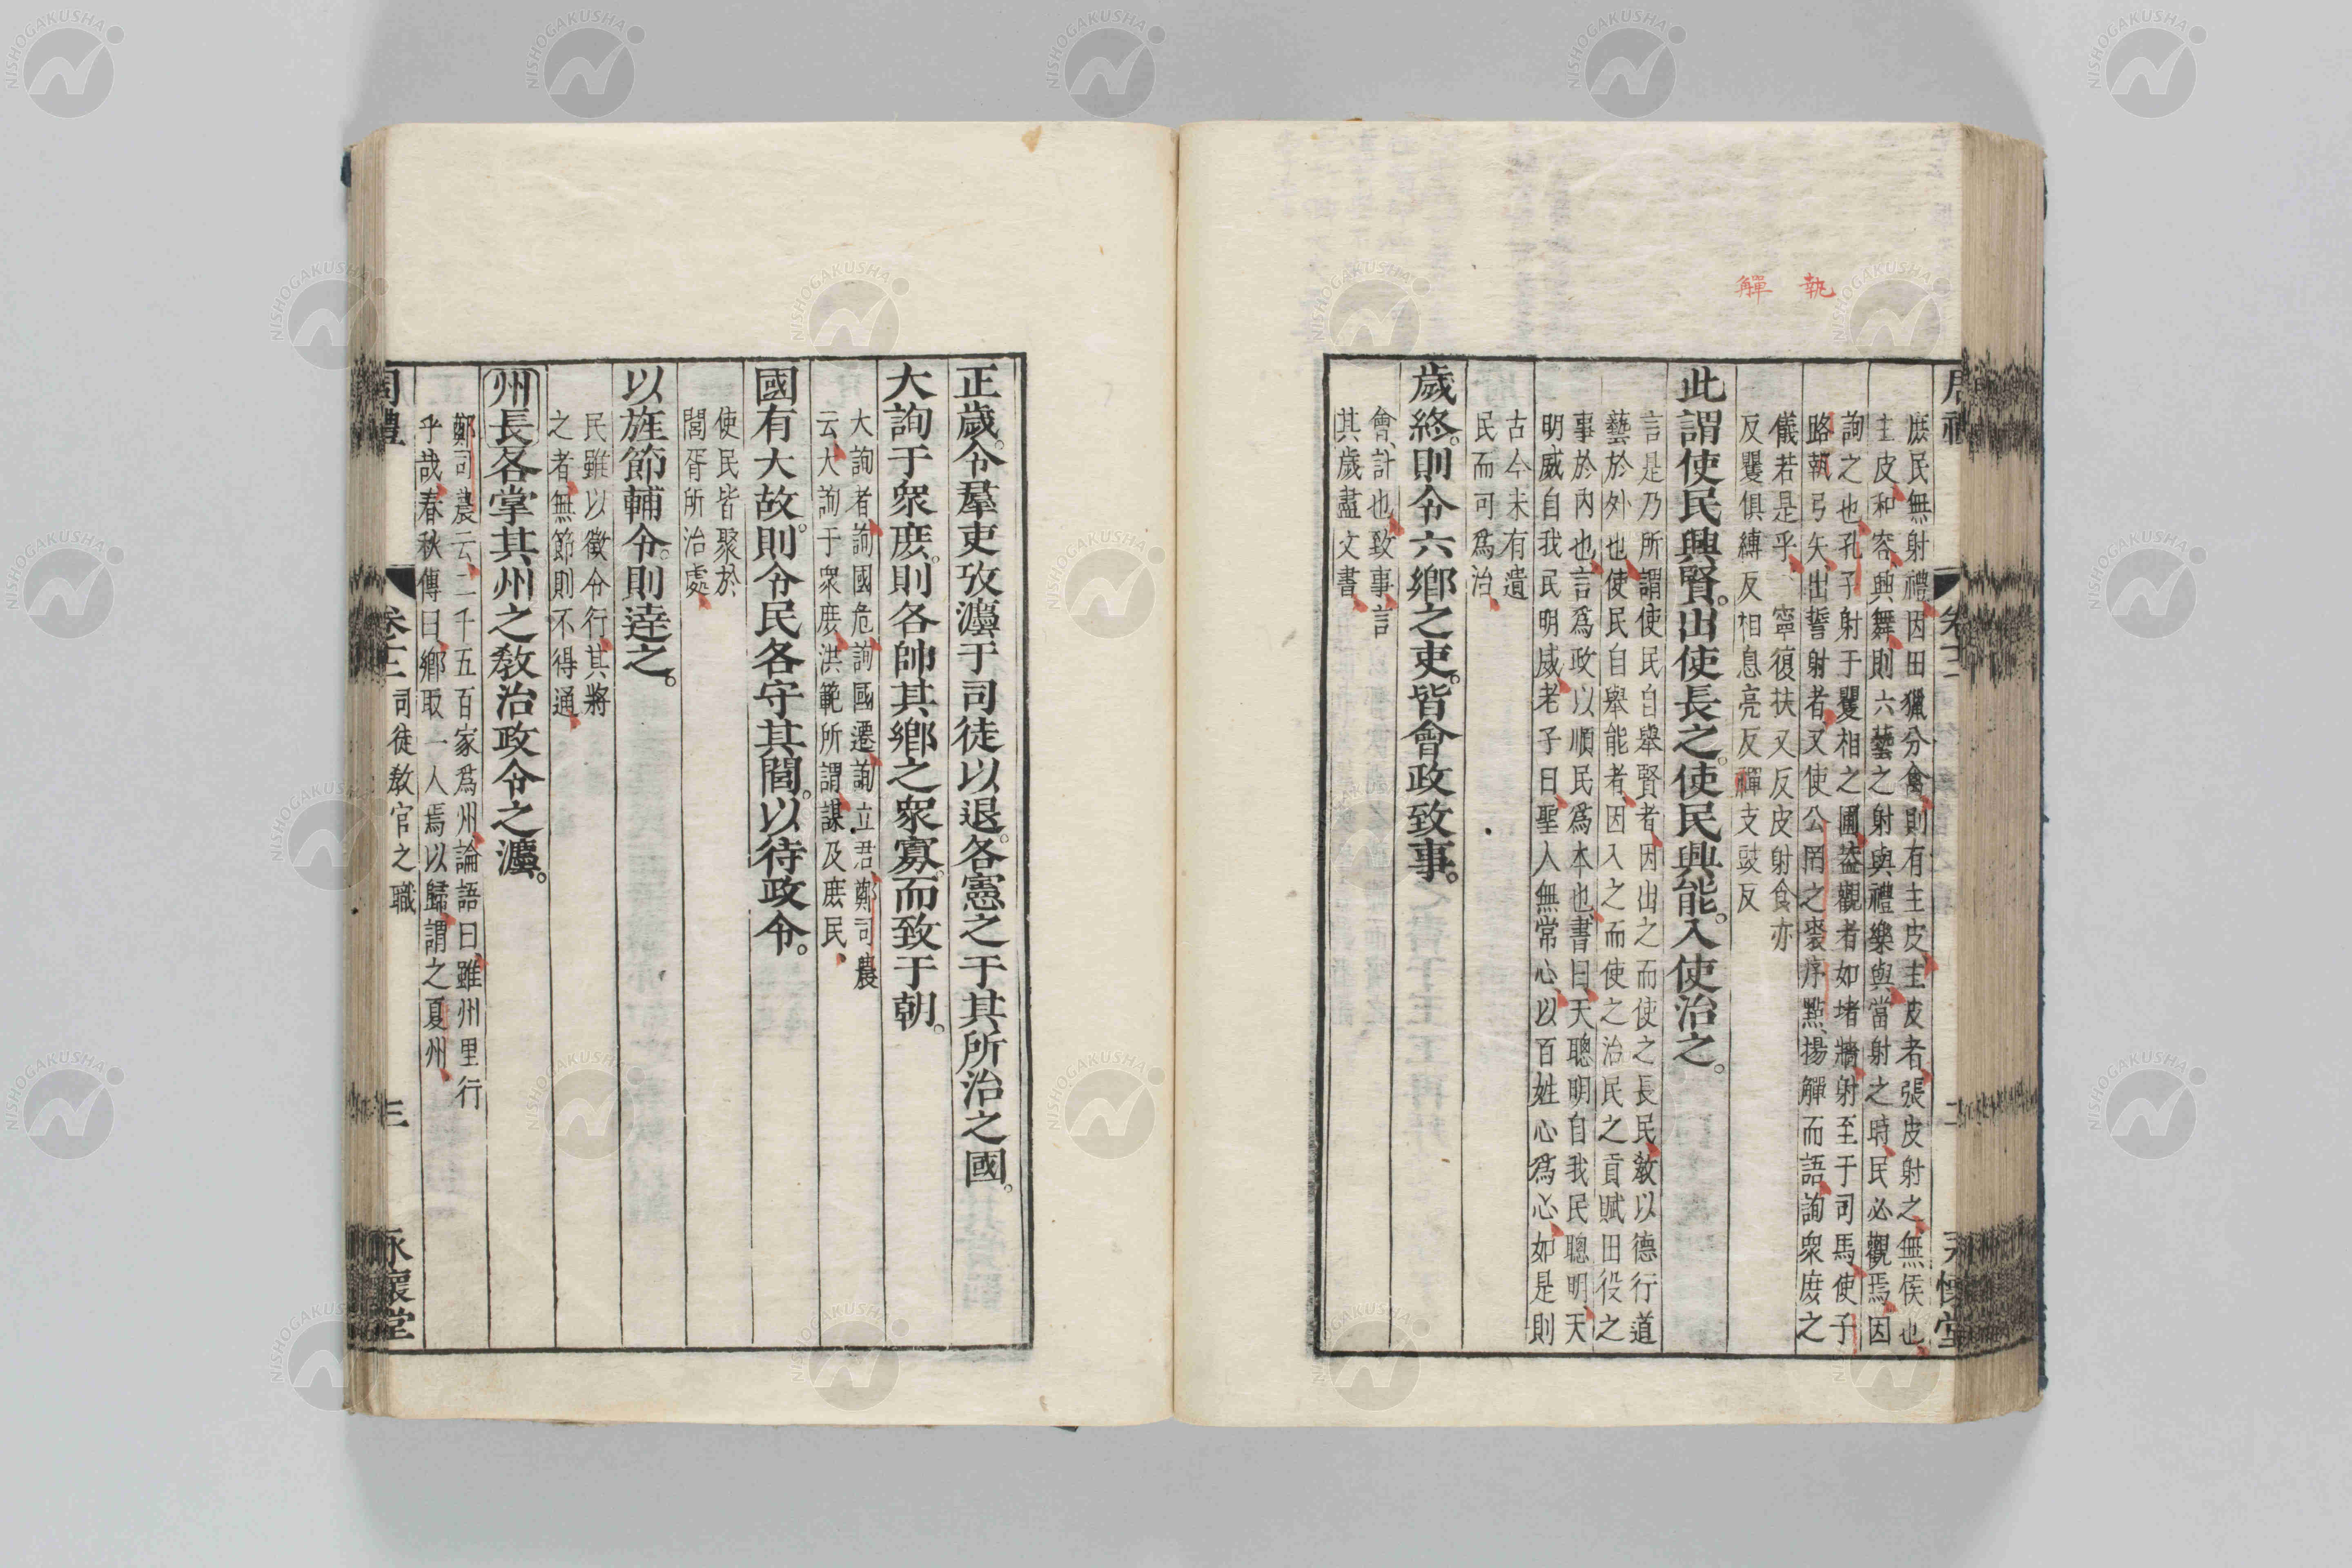 執
觶
庶民無射禮因田獵分禽則有主皮主皮者張皮射之無侯也
主皮和容興舞則六藝之射與禮樂與當射之時民必觀焉因
詢之也孔子射于矍相之圃蓋觀者如堵牆射至于司馬使子
路執弓矢出誓射者又使公罔之裘序點揚觶而語詢衆庶之
儀若是乎 寧復扶又反皮射食亦
反矍俱縛反相息亮反觶支豉反
此謂使民興賢。出使長之。使民興能。入使治之。
言是乃所謂使民自舉賢者因出之而使之長民敎以德行道
藝於外也使民自舉能者因入之而使之治民之貢賦田役之
事於內也言爲政以順民爲本也書曰天聰明自我民聰明天
明威自我民明威老子曰聖人無常心以百姓心爲心如是則
古今未有遺
民而可爲治
歲終。則令六鄉之吏。皆會政致事。
會計也致事言
其歲盡文書
正歲。令羣吏攷灋于司徒以退。各憲之于其所治之國。
大詢于衆庶。則各帥其鄉之衆寡。而致于朝。
大詢者詢國危詢國遷詢立君鄭司農
云大詢于衆庶洪範所謂謀及庶民
國有大故。則令民各守其閭。以待政令。
使民皆聚於
閭胥所治處
以旌節輔令。則逹之。
民雖以徵令行其將
之者無節則不得通
州長各掌其州之敎治政令之灋。
鄭司農云二千五百家爲州論語曰雖州里行
乎哉春秋傳曰鄉取一人焉以歸謂之夏州
周禮 卷十二 司徒敎官之職 三 永懷堂
NISHOGAKUSHA